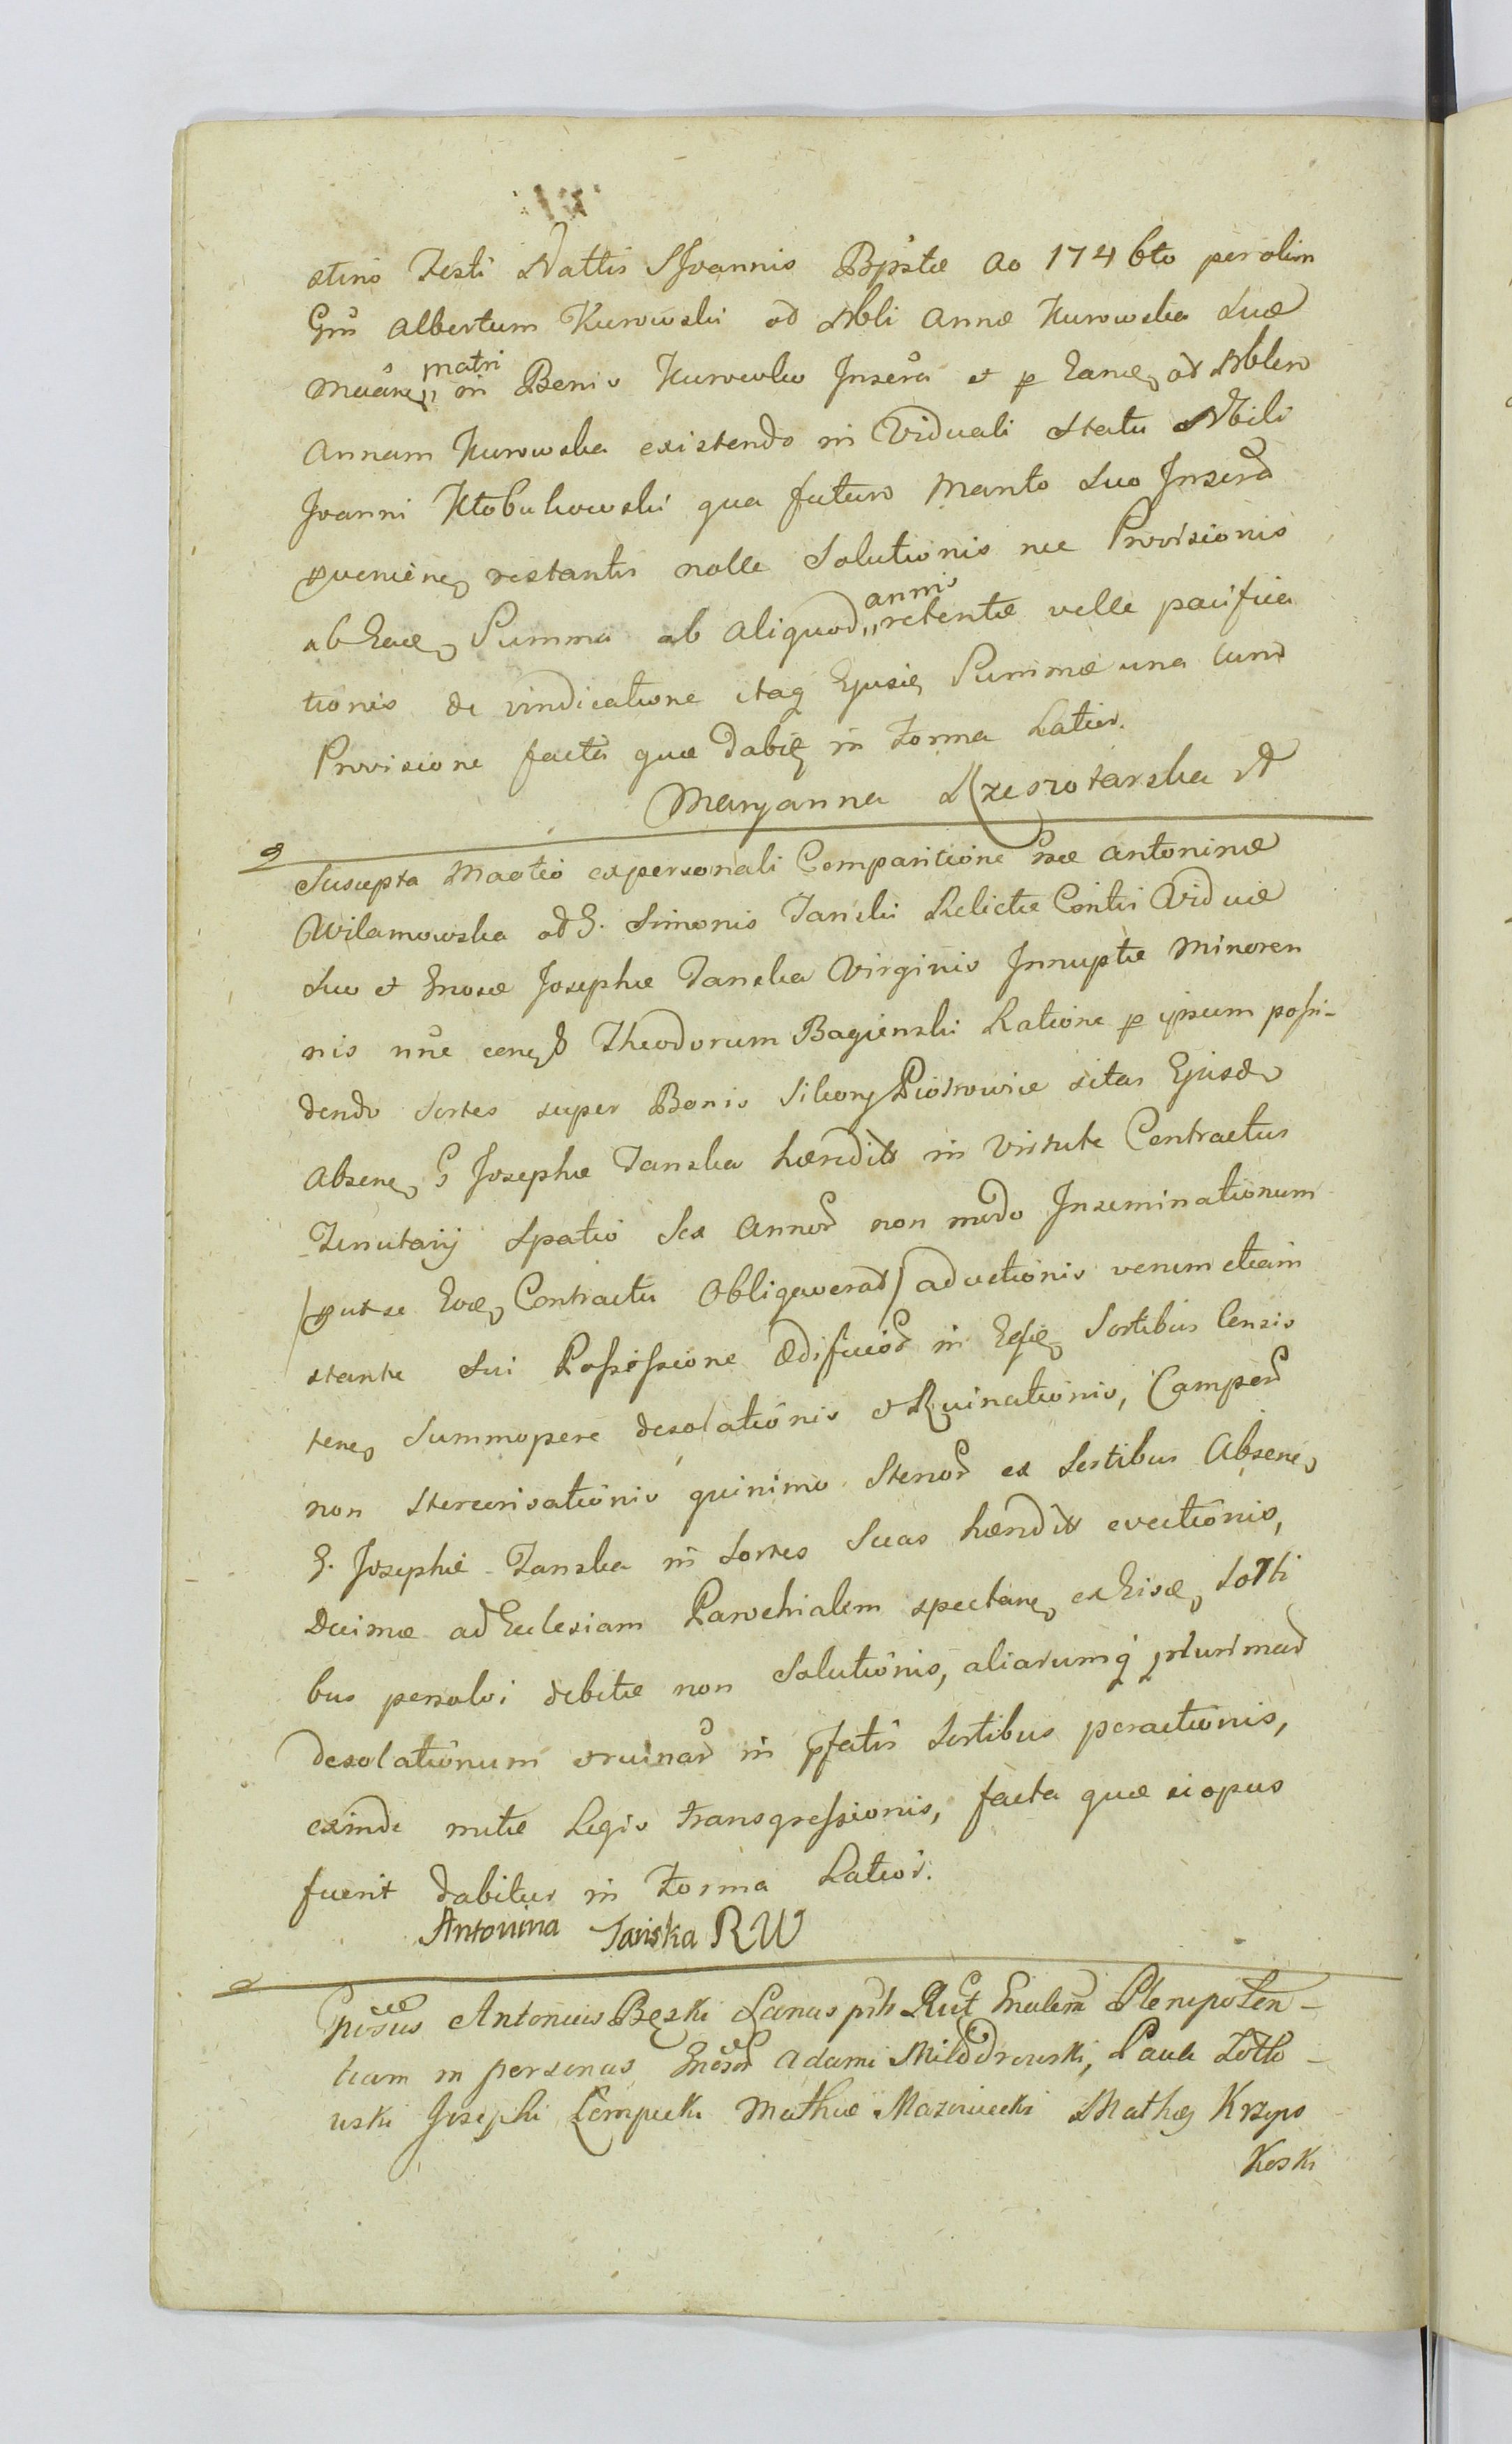 stino Festi Nattis S Joannis Bpstæ Ao 1746to per olim
Grũ Albertum Kurowski ad Nbli Annæ Kurowska Suæ
matri
in Bonis Kurowko Inscra et p Eand ad Nblem
Annam Kurowska existendo in Viduali Statu Nbili
Joanni Kłobukowski qua futuro Marito Suo Inscrd
restantis nolle Solutionis nec Provisionis
annis
ab Summa ab aliquod,, retentæ velle pacifica
tionis de vindicatione itaq Summæ una cum
Provisione facta quæ in Forma Latior.
Maryanna Rzeszotarska
Suscepta Maõtio ex personali Comparitione Antoninæ
Wilamowska od G. Simonis Tanski Relictæ Contis Viduæ
Suo et Gnosæ Josephæ Tanska Virginis Innuptæ Minoren
nis Theodorum Bagienski Ratione p ipsum possi-
dendo Sortes super Bonis Sikory Piotrowice sitas Ejusd
Absen G Josephæ Tanska hæredit in Virtute Contractus
Tenutarij Spatio Sex Annor non modo Inseminationum
/put se Contractu Obligaverat/ aductionis verum etiam
stante Sui Possessione Ædificior in Sortibus Consis
ten Summopere desolationis et Ruinationis, Campor
non Stercorisationis quinimo Stercor ex Sortibus Absen
G. Josephæ Tanska in Sortes Suas hæredit evectionis,
Decimæ ad Ecclesiam Parochialem spectan ex Sorti
bus persolvi debitæ non Solutionis, aliarumq plurimar
desolationum et ruinar in pfatis Sortibus peractionis,
exinde mitæ Legis transgressionis, facta quæ si opus
fuerit dabitur in Forma Latior.
Antonina Tańska RW
Antonius Bęski Plenipoten-
tiam in personas Adami Milodrowski, Pauli Zołto-
wski Josephi Łempicki Mathiæ Mazowiecki Mathæ Krzyzo
Koski